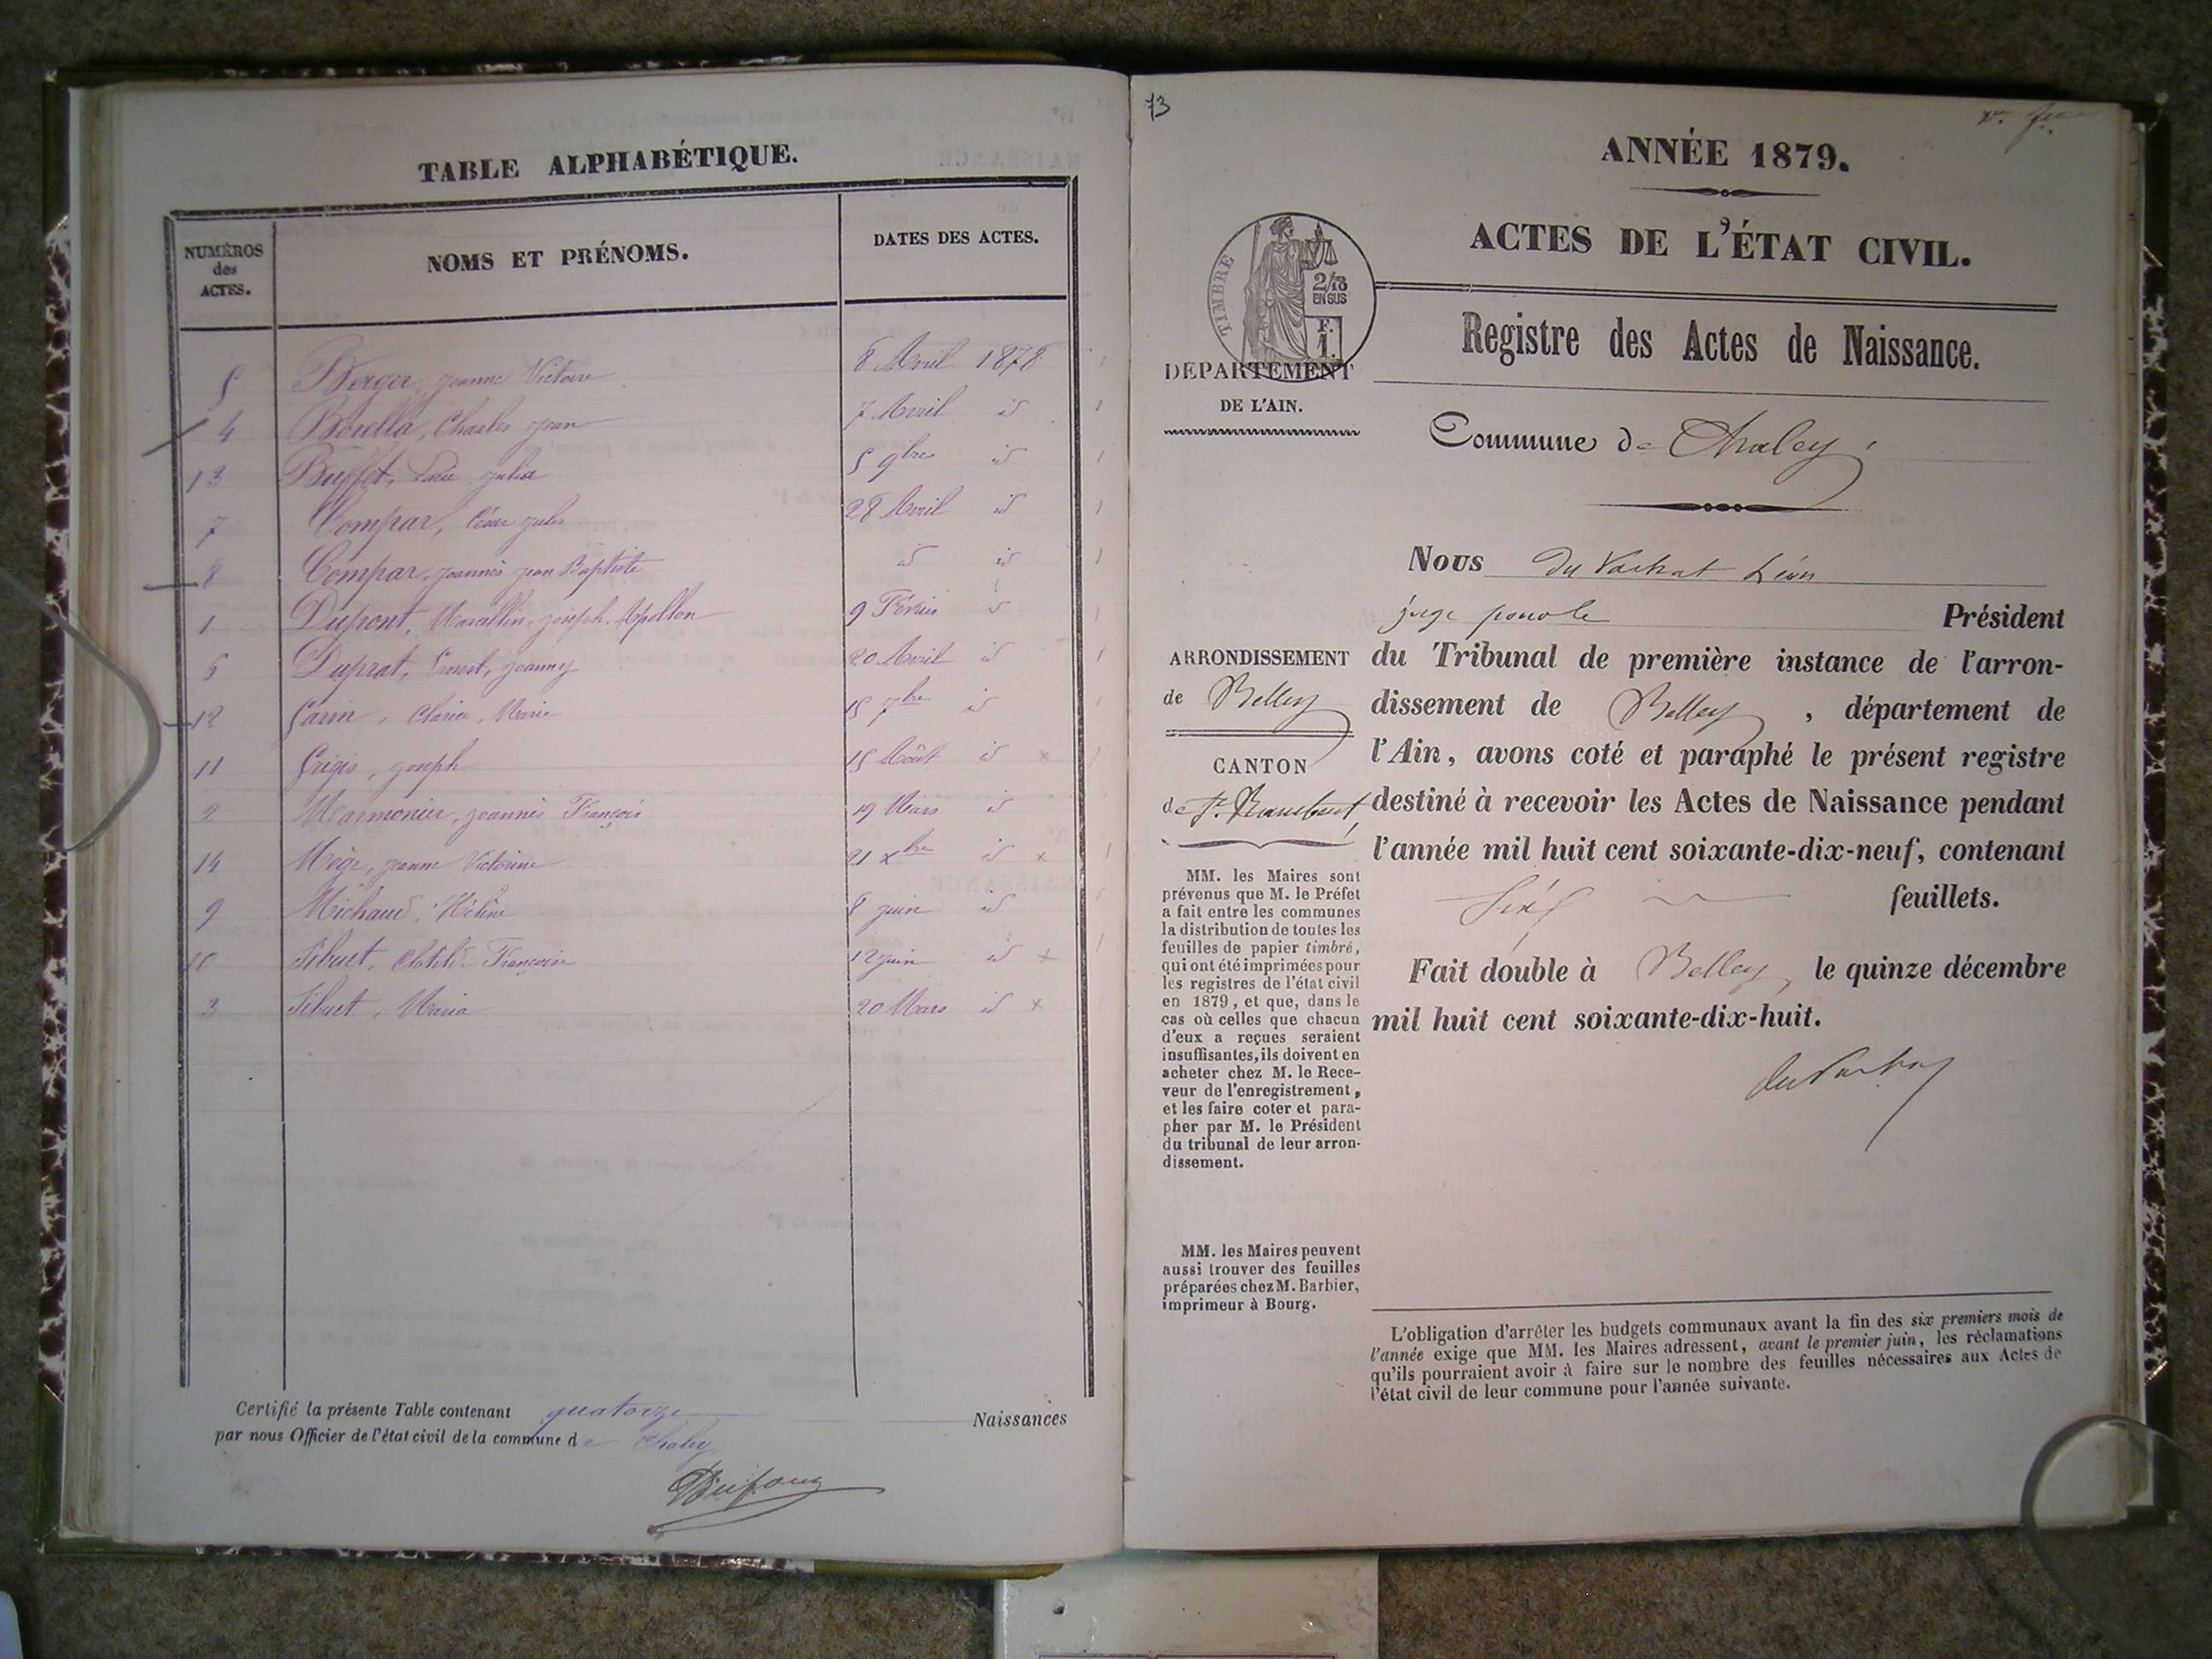 TABLE ALPHABÉTIQUE.
NUMÉROS des ACTES. NOMS ET PRÉNOMS. DATES DES ACTES.
5 Berger, Jeanne Victoire 8 Avril 1878
4 Borella, Charles Jean 7 Avril id
13 Buffet, Julia 5 9bre id
7 Compar, César Jules 28 Avril id
8 Compar, Joannès Jean Baptiste id id
1 Dupont, Marcellin, Joseph, Apollon 9 Février id
6 Duprat, Ernest, Joanny 20 Avril id
12 Garin, Marie 15 7bre id
11 Grigis, Joseph 15 Août id x
2 Marmonier, Joannès François 19 Mars id
14 Mége, Jeanne Victorine 21 xbre id x
9 Michaud, Hélène 8 juin id
10 Sibuet, Clotilde Françoise 12 juin id x
3 Sibuet, Maria 20 Mars id x
Certifié la présente Table contenant quatorze Naissances
par nous Officier de l'état civil de la commune de Chaley
Dufour
73
ANNÉE 1879.
ACTES DE L'ÉTAT CIVIL.
TIMBRE
2/10
EN SUS
F.
1.
DÉPARTEMENT
DE L'AIN.
Registre des Actes de Naissance.
Commune de Chaley
ARRONDISSEMENT
de Belley
CANTON
de St. Rambert
MM. les Maires sont
prévenus que M. le Préfet
a fait entre les communes
la distribution de toutes les
feuilles de papier timbré,
qui ont été imprimées pour
les registres de l'état civil
en 1879, et que, dans le
cas où celles que chacun
d'eux a reçues seraient
insuffisantes, ils doivent en
acheter chez M. le Rece-
veur de l'enregistrement,
et les faire coter et para-
pher par M. le Président
du tribunal de leur arron-
dissement.
MM. les Maires peuvent
aussi trouver des feuilles
préparées chez M. Barbier,
imprimeur à Bourg.
Nous du Vachat Léon
juge pour le Président
du Tribunal de première instance de l'arron-
dissement de Belley, département de
l'Ain, avons coté et paraphé le présent registre
destiné à recevoir les Actes de Naissance pendant
l'année mil huit cent soixante-dix-neuf, contenant
Six feuillets.
Fait double à Belley, le quinze décembre
mil huit cent soixante-dix-huit.
du Vachat
L'obligation d'arrêter les budgets communaux avant la fin des six premiers mois de
l'année exige que MM. les Maires adressent, avant le premier juin, les réclamations
qu'ils pourraient avoir à faire sur le nombre des feuilles nécessaires aux Actes de
l'état civil de leur commune pour l'année suivante.